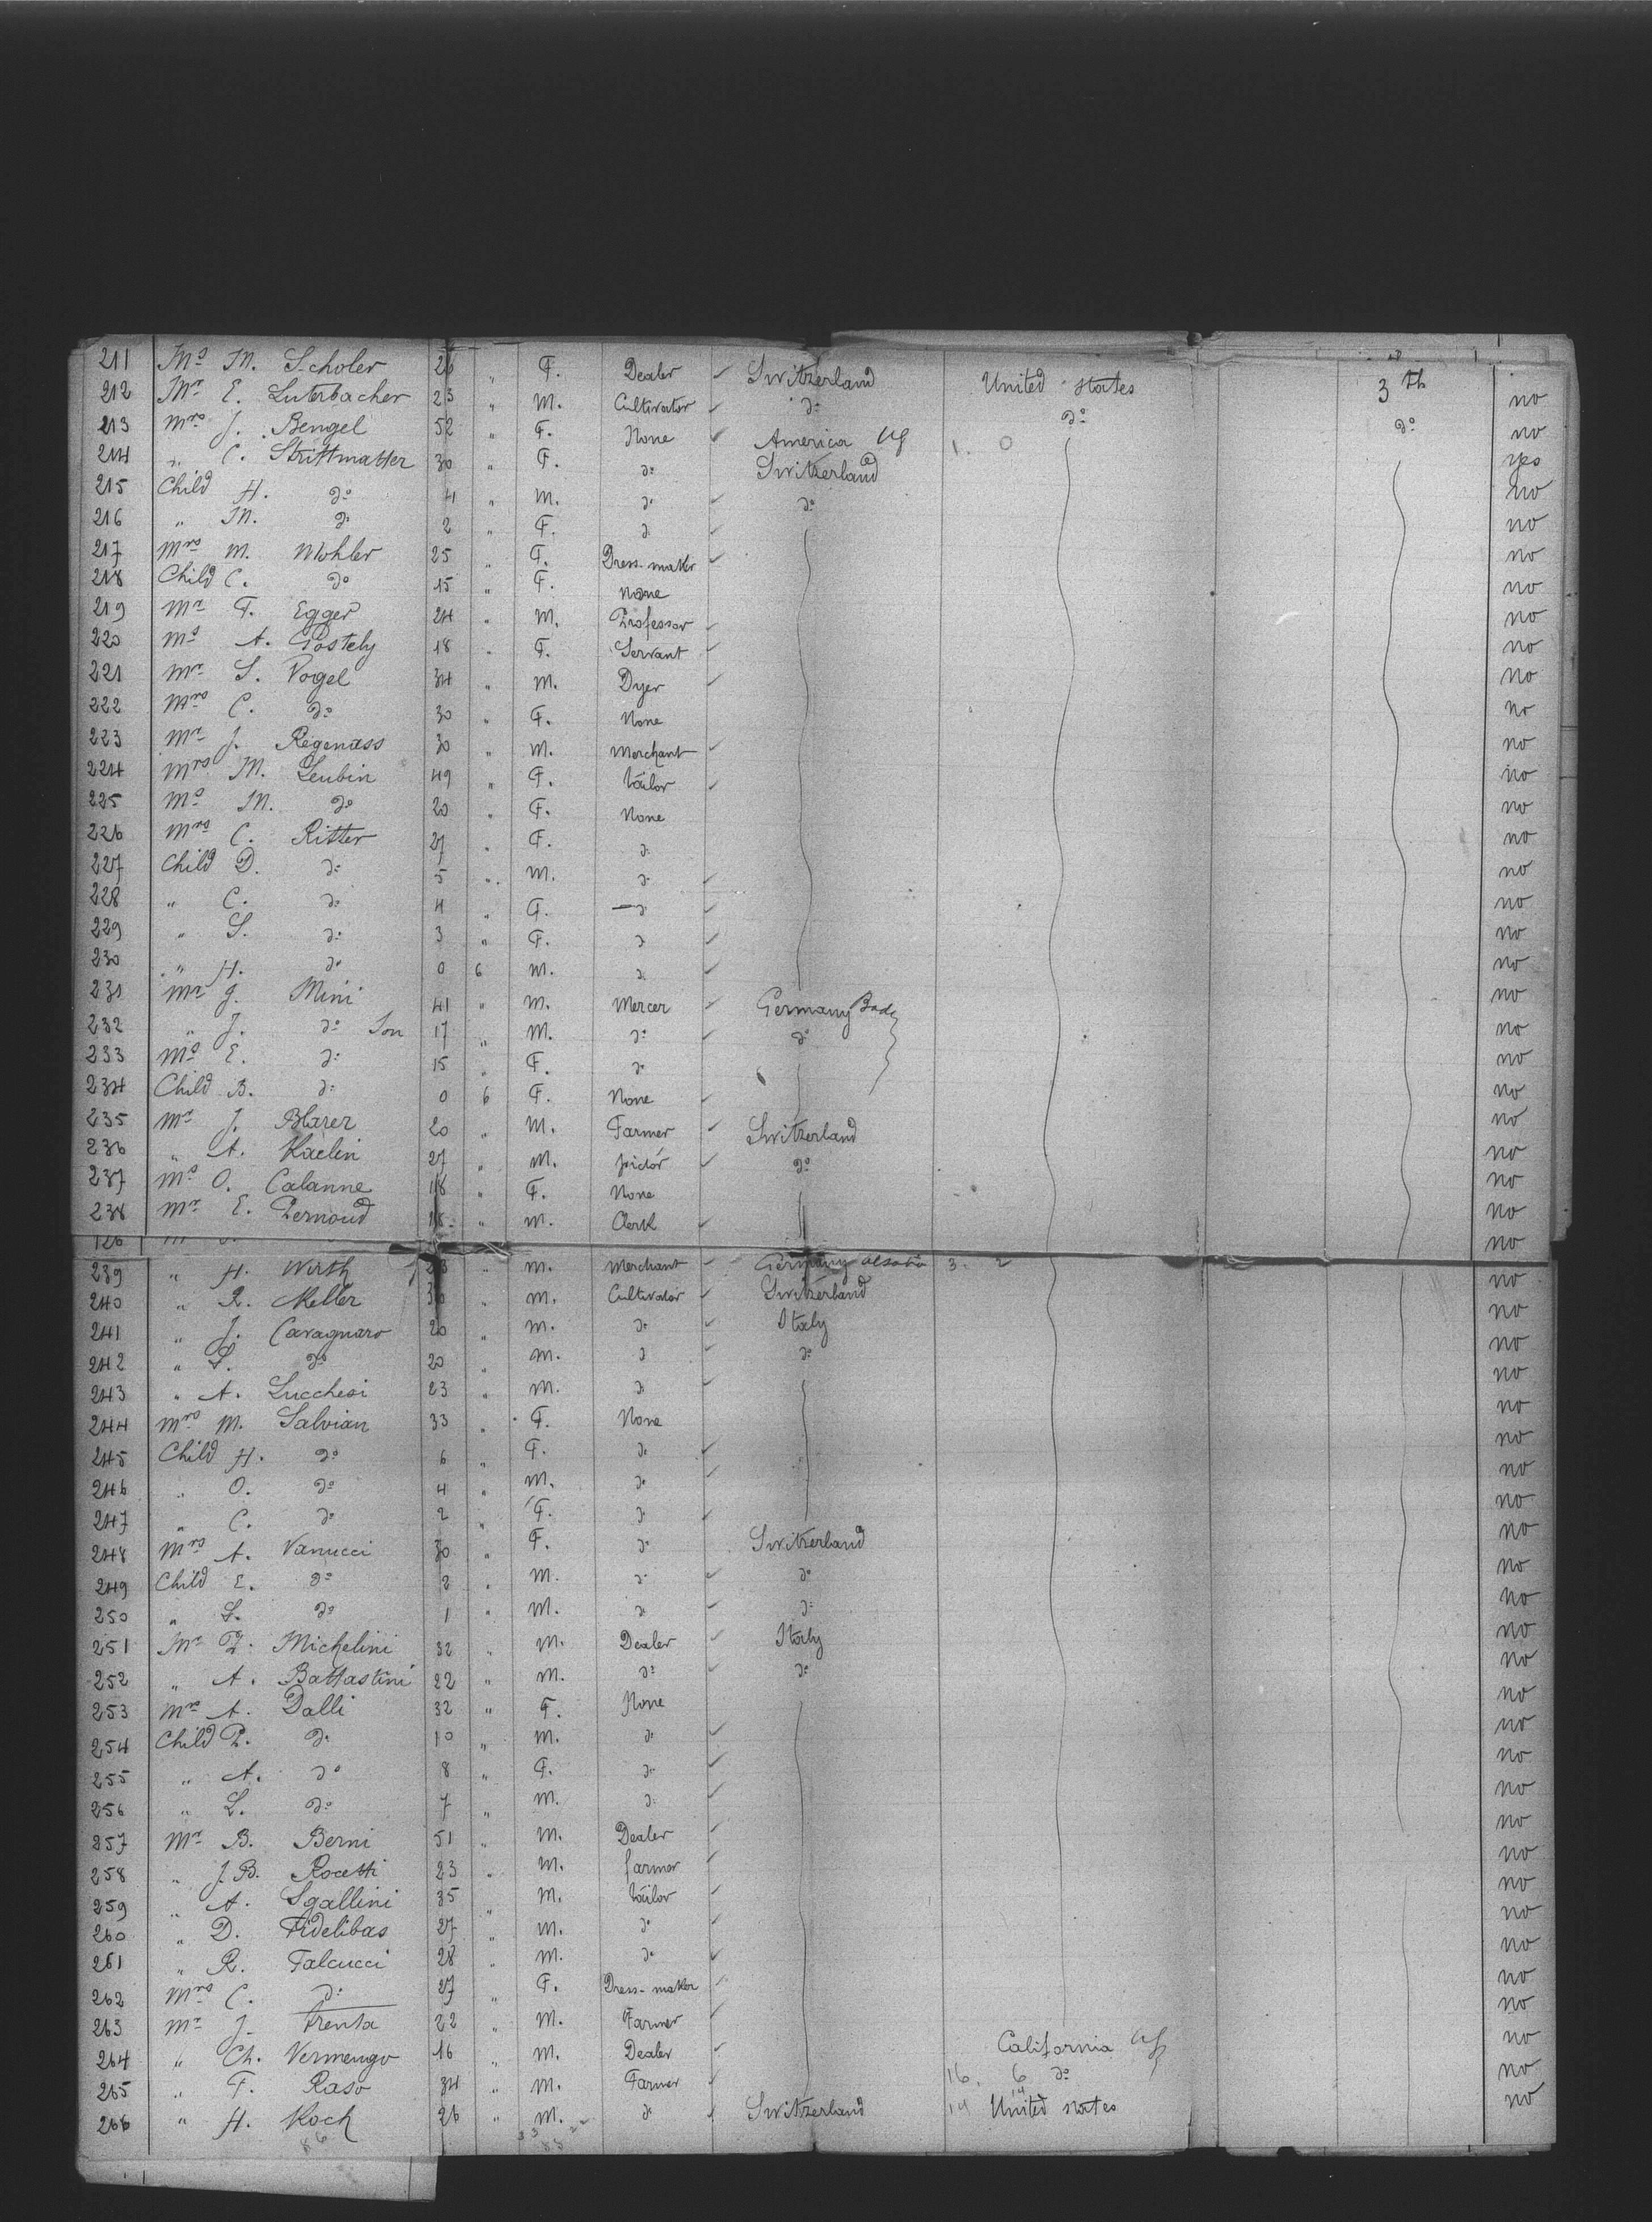 211 Ms M. Scholer 26 " F. Dealer Switzerland United States 3 th no
212 Mr E. Luterbacher 23 " M. Cultivator do do do no
213 Mrs J. Bengel 52 " F. None America 1. 0 yes
214 " C. Strittmatter 30 " F. do Switzerland no
215 Child H. do 4 " M. do do no
216 " M. do 2 " F. do no
217 Mrs M. Mohler 25 " F. Dress-maker no
218 Child C. do 15 " F. none no
219 Mr F. Egger 24 " M. Professor no
220 Ms A. Postely 18 " F. Servant no
221 Mr S. Vogel 34 " M. Dyer no
222 Mrs C. do 30 " F. None no
223 Mr J. Regenass 30 " M. Merchant no
224 Mrs M. Leubin 49 " F. tailor no
225 Ms M. do 20 " F. None no
226 Mrs C. Ritter 27 " F. do no
227 Child D. do 5 " M. do no
228 " C. do 4 " F. do no
229 " S. do 3 " F. do no
230 " H. do 0 6 M. do no
231 Mr J. Mini 41 " M. Mercer Germany no
232 " J. do Son 17 " M. do do no
233 Ms E. do 15 " F. do no
234 Child B. do 0 6 F. None no
235 Mr J. Blarer 20 " M. Farmer Switzerland no
236 " A. Kaelin 27 " M. do no
237 Ms O. Calanne 18 " F. None no
238 Mr E. Pernoud " M. Clerk no
126
239 " H. Wirth " M. Merchant Germany 3. 2 no
240 " R. Meller " M. Cultivator Switzerland no
241 " J. Cavagnaro 20 " M. do Italy no
242 " L. do 20 " M. do do no
243 " A. Lucchesi 23 " M. do no
244 Mrs M. Salvian 33 " F. None no
245 Child H. do 6 " F. do no
246 " O. do 4 " M. do no
247 " C. do 2 " F. do no
248 Mrs A. Vanucci 30 " F. do Switzerland no
249 Child E. do 2 " M. do do no
250 " L. do 1 " M. do do no
251 Mr P. Michelini 32 " M. Dealer Italy no
252 " A. Battastini 22 " M. do do no
253 A. Dalli 32 " F. None no
254 Child P. do 10 " M. do no
255 " A. do 8 " F. do no
256 " L. do 7 " M. do no
257 Mr B. Berni 51 " M. Dealer no
258 " J.B. Rocetti 23 " M. farmer no
259 " A. Sgallini 35 " M. tailor no
260 " D. Fidelibas 27 " M. do no
261 " R. Falcucci 28 " M. do no
262 Mrs C. do 27 " F. Dress-maker no
263 Mr J. Trenta 22 " M. Farmer no
264 " Ch. Vermengo 16 " M. Dealer California no
265 " F. Raso 34 " M. Farmer 16. 6 do no
266 " H. Koch 26 " M. do Switzerland 14 United States no